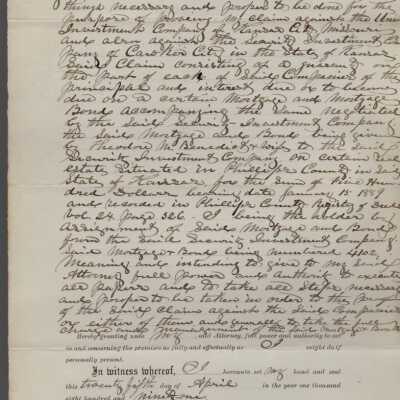 things necessary and proper to be done for the
purpose of proving my claim against the
Investment Company of Kansas City, Missouri
and also against the Security Investment Com-
pany of Cawker City, in the State of Kansas
Said Claim consisting of a guaranty on
the part of each of Said Companies of the
principal and interest due & to become
due on a certain Mortgage and Mortgage
Bond accompanying the same negotiated
by the Said Security Investment Company
the Said Mortgage and Bond being given
by Theodore M. Benedict & wife to the Said
Security Investment Company on certain real
estate Situated in Phillips County in Said
State of Kansas, for the Sum of
dred Dollars bearing date January 15. 1887
and recorded in Phillips County Registry of Deeds
Vol. 24 Page 326 - I being the holder by
Assignment of Said Mortgage and Bond
from the Said Security Investment Company
Said Mortgage Bond being numbered 4102,
Meaning and intending to give to my Said
Attorney full power and authority to execute
all papers and to take all Steps necessary
and proper to be taken in order to the proof
of the Said Claims against the Said Companies
or either of them and generally to take the full
charge and management of the Said
hereby granting unto my said Attorney, full power and authority to act
in and concerning the premises as fully and effectually as might do if
personally present.
In witness whereof, I hereunto set my hand and seal
this twenty fifth day of April in the year one thousand
eight hundred and ninety one